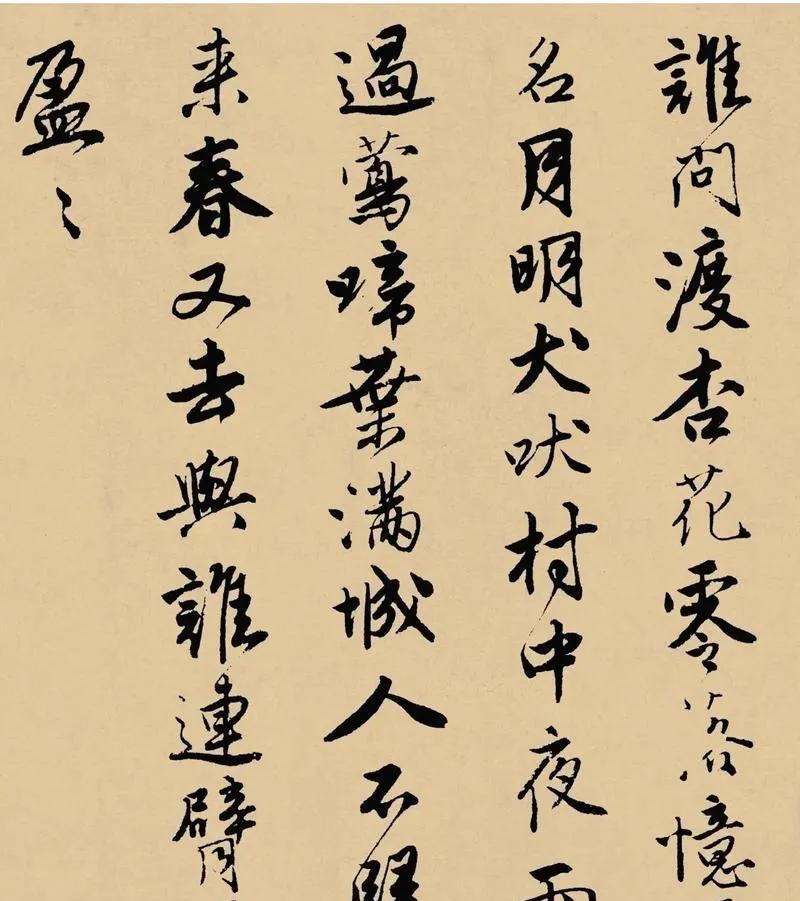 誰問渡杏花零落憶
名月明犬吠村中夜雨
過鶯啼葉滿城人不歸
来春又去與誰連臂
盈〻